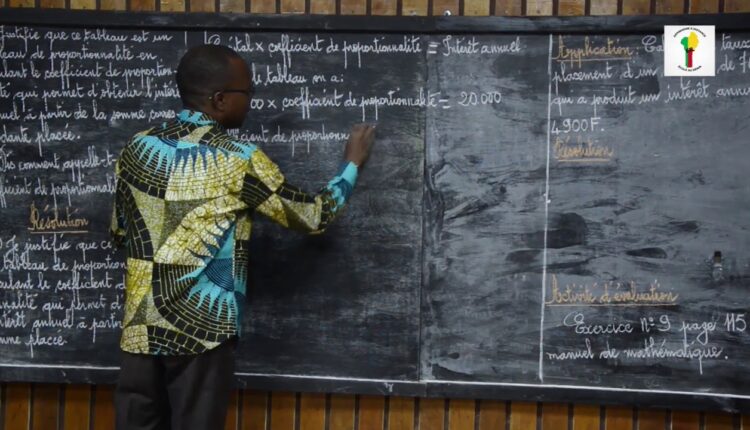 Justifie que ce tableau est un
tableau de proportionnalité en
calculant le coefficient de proportion
qui permet d'obtenir l'intérêt
annuel à partir de la somme
placée.
comment appelle-t-
coefficient de proportionnalité
Résolution
Je justifie que ce
tableau de proportion
calculant le coefficient de
qui permet d'
intérêt annuel à partir
somme placée
Capital x coefficient de proportionnalité = Intérêt annuel
le tableau on a:
00 x coefficient de proportionnalité = 20.000
coefficient de proportionn
Application:
placement d'un
qui a produit un intérêt annuel
4.900F.
Résolution
Activité d'évaluation
Exercice N°9 page 115
manuel de mathématique.